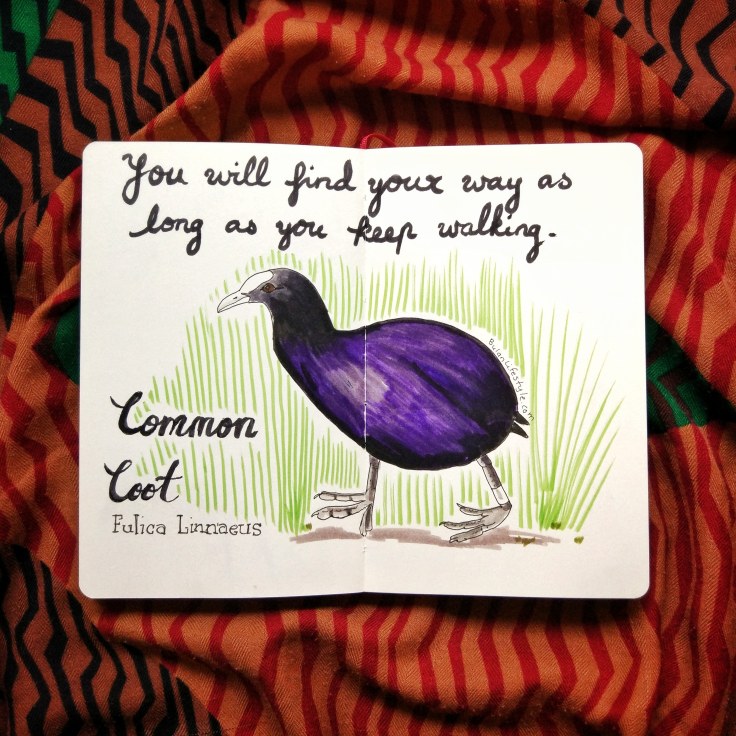 You will find your way as
long as you keep walking.
BulanLifestyle.com
Common
Coot
Fulica Linnaeus